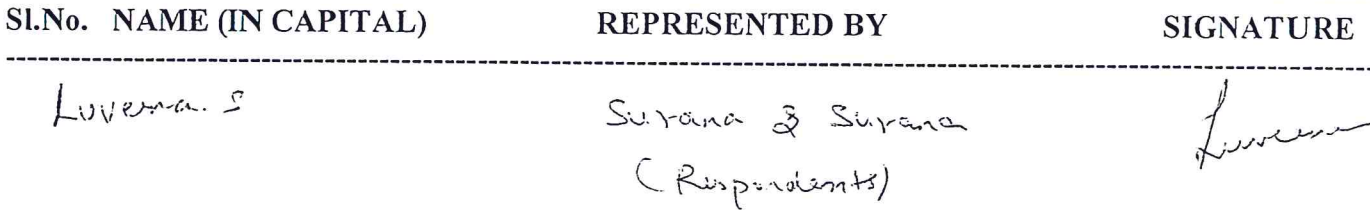 Sl.No. NAME (IN CAPITAL) REPRESENTED BY SIGNATURE
Luvena. S Surana & Surana
(Respondents)